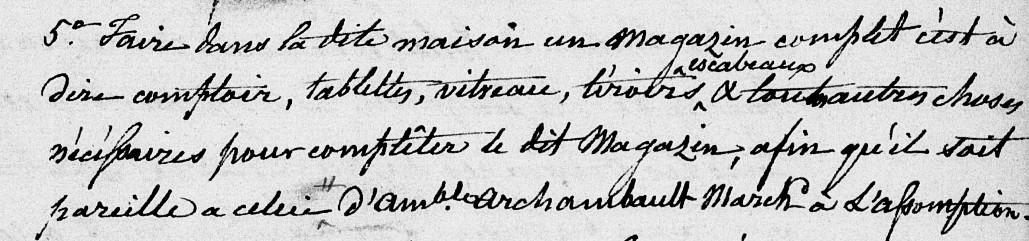 5.° Faire dans la dite maison un Magazin complet c'est à
dire comptoir, tablettes, vitreau, tiroirs, escabeaux & toutes autres choses
nécéssaires pour complêter le dit Magazin, afin qu'il soit
pareille a celui d'Amble Archambault March.d à L'assomption.